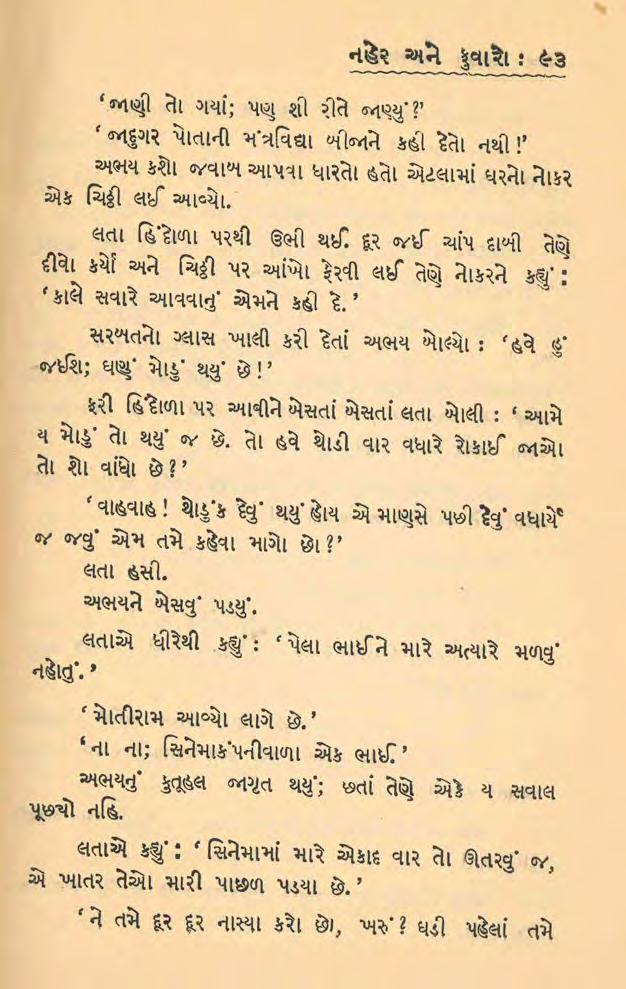 નહેર અને ફુવારો : ૯૩
‘જાણી તો ગયાં; પણ શી રીતે જાણ્યું ?’
‘ જાદુગર પોતાની મંત્રવિદ્યા બીજાને કહી દેતો નથી !’
અભય કશો જવાબ આપવા ધારતો હતો એટલામાં ઘરનો નોકર
એક ચિઠ્ઠી લઈ આવ્યો.
લતા હિંદોળા પરથી ઉભી થઈ. દૂર જઈ ચાંપ દાબી તેણે
દીવો કર્યો અને ચિઠ્ઠી પર આંખો ફેરવી લઈ તેણે નોકરને કહ્યું :
‘ કાલે સવારે આવવાનું એમને કહી દે. ’
સરબતનો ગ્લાસ ખાલી કરી દેતાં અભય બોલ્યો : ‘ હવે હું
જઈશ; ઘણું મોડું થયું છે !’
ફરી હિંદોળા પર આવીને બેસતાં બેસતાં લતા બોલી : ‘ આમે
ય મોડું તો થયું જ છે. તો હવે થોડી વાર વધારે રોકાઈ જાઓ
તો શો વાંધો છે ?’
‘ વાહવાહ ! થોડુંક દેવું થયું હોય એ માણસે પછી દેવું વધાર્યે
જ જવું એમ તમે કહેવા માગો છો ?’
લતા હસી.
અભયને બેસવું પડયું.
લતાએ ધીરેથી કહ્યું : ‘ પેલા ભાઈને મારે અત્યારે મળવું
નહોતું. ’
‘ મોતીરામ આવ્યો લાગે છે. ’
‘ ના ના; સિનેમાકંપનીવાળા એક ભાઈ. ’
અભયનું કુતૂહલ જાગૃત થયું; છતાં તેણે એકે ય સવાલ
પૂછ્યો નહિ.
લતાએ કહ્યું : ‘ સિનેમામાં મારે એકાદ વાર તો ઊતરવું જ,
એ ખાતર તેઓ મારી પાછળ પડયા છે. ’
‘ ને તમે દૂર દૂર નાસ્યા કરો છો, ખરું ? ઘડી પહેલાં તમે